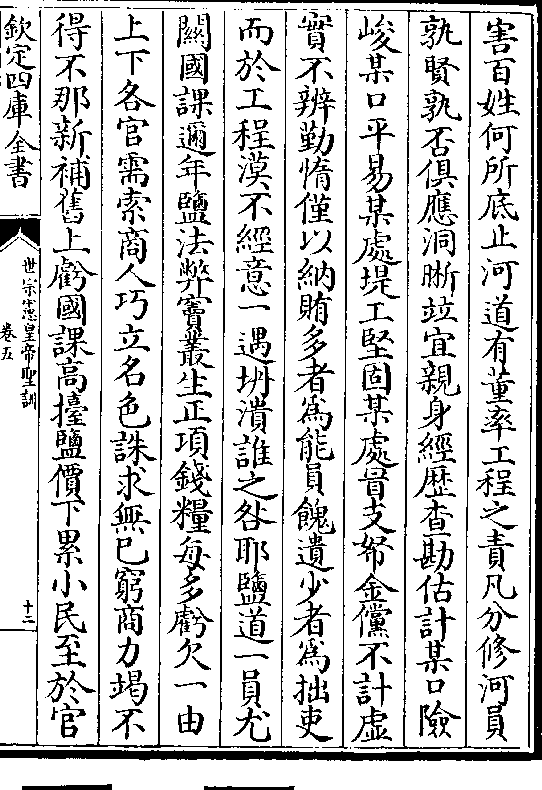 害百姓何所底止河道有董率工程之責凡分修河員
孰賢孰否俱應洞晰竝宜親身經歷查勘估計某口險
峻某口平易某處堤工堅固某處冒支帑金儻不計虛
實不辨勤惰僅以納賄多者爲能員餽遺少者爲拙吏
而於工程漠不經意一遇坍潰誰之咎耶鹽道一員尤
關國課邇年鹽法弊竇叢生正項錢糧每多虧欠一由
上下各官需索商人巧立名色誅求無已窮商力竭不
得不那新補舊上虧國課高擡鹽價下累小民至於官
欽定四庫全書
世宗憲皇帝聖訓
卷五
十二